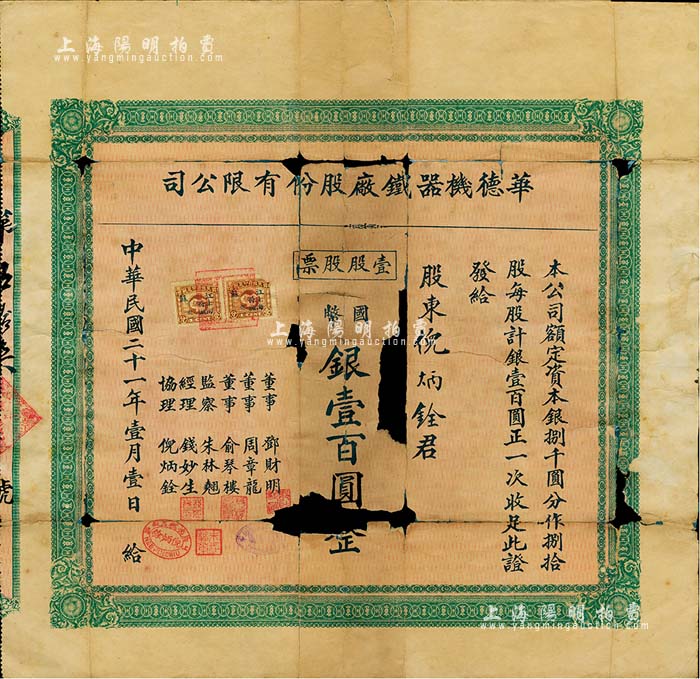 上海陽明拍賣
www.yangmingauction.com
華德機器鐵廠股份有限公司
本公司額定資本銀捌千圓分作捌拾
股每股計銀壹百圓正一次收足此證
發給
股東倪炳銓君
壹股股票
國幣
銀壹百圓
董事 鄧財明
董事 周章龍
董事 俞琴樓
監察 朱林翹
經理 錢妙生
協理 倪炳銓
中華民國二十一年壹月壹日 給
第
號
上海陽明拍賣
www.yangmingauction.com
上海陽明拍賣
www.yangmingauction.com